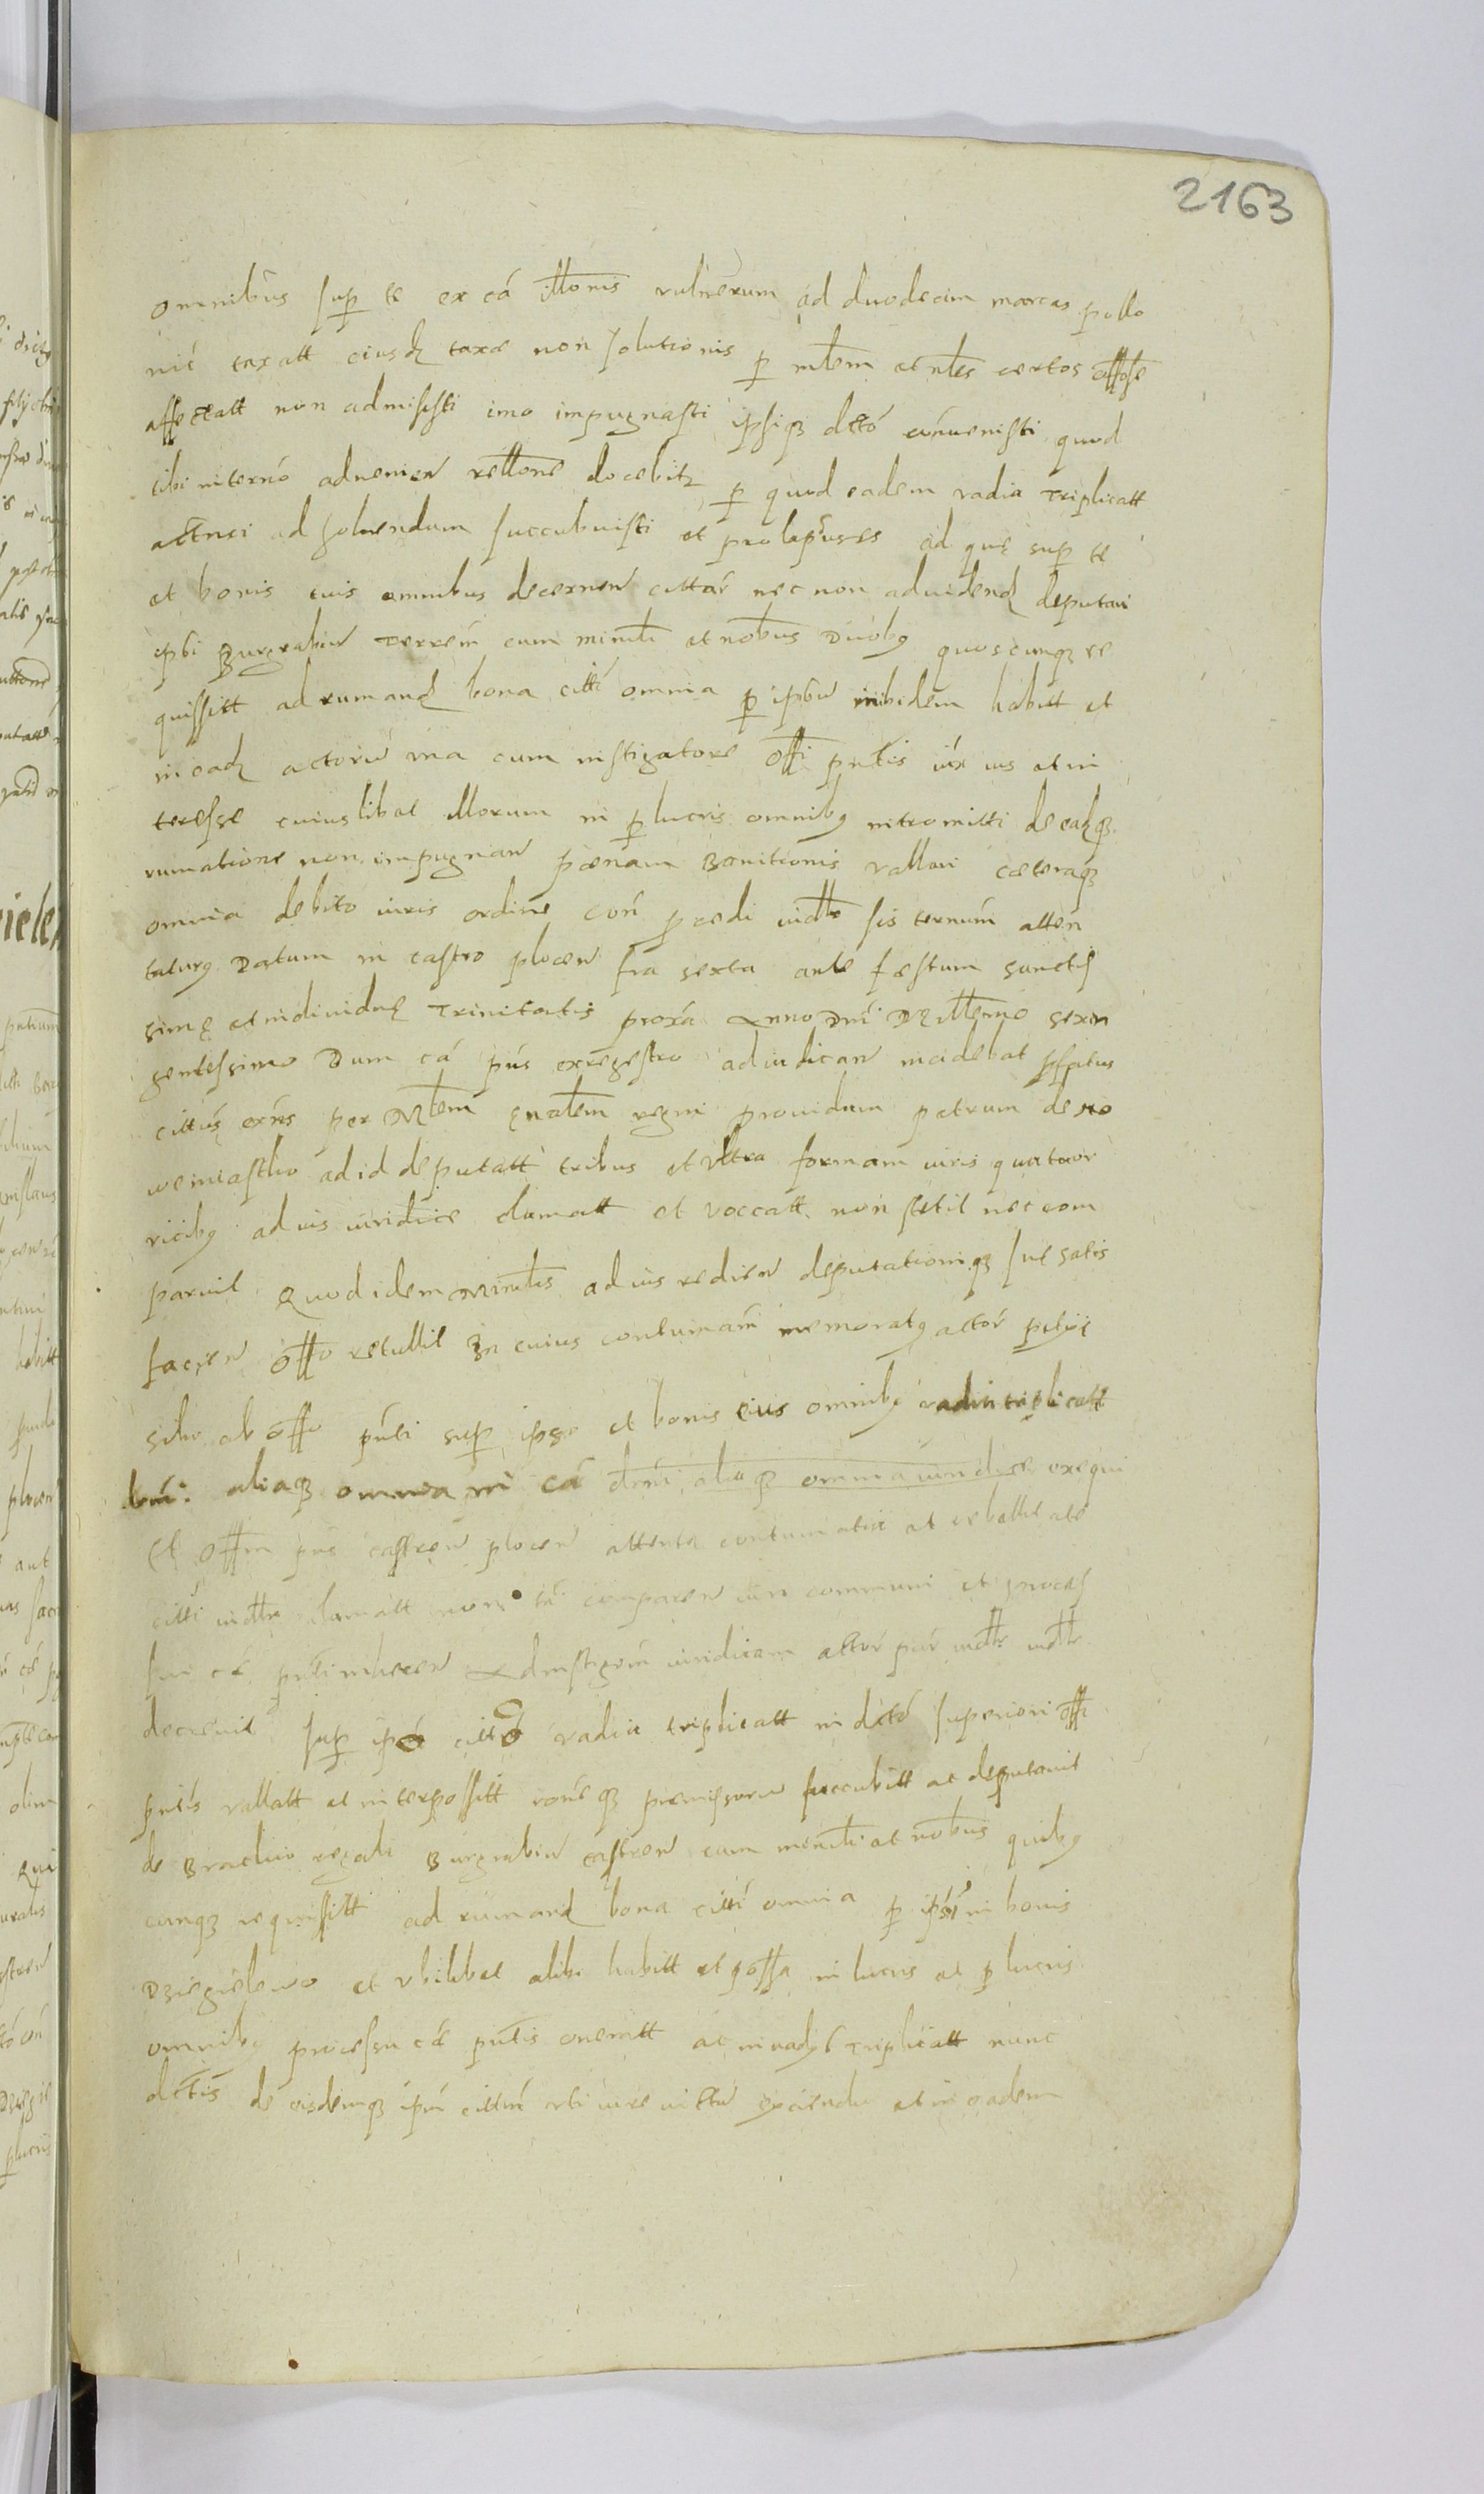 2163
omnibus sup te ex cá illonis vulnerum ad duodecim marcas pollo
nić taxatt eiusdẹ taxae non solutionis p mlem et nles certos offose
affectatt non admisisti imo impugnasti ipsiqз dctó conuenisti quod
tibi in termó aduenien rellone docebitz p quod eadem vadia triplicatt
ad soluendum succubuisti et prolapsus es ad quę sup te
et bonis tuis omnibus decernen cittar nec non ad videnđ deputari
ipsi Burgrabiu Terrem cum minli et nobus Duobз quoscunqз re
quissitt ad rumanđ bona citti omnia p ipsu inibidem habitt et
in eadз actoru vna cum instigatore offi pntis iux ius et in
teresse cuiuslibet illorum in plucris omnibз intromitti de eadqз
rumatione non impugnan paenam Banitionis vallari caeteraqз
omnia debito iuris ordine cón pcedi vidtr sis ternum atten
taturз Datum in castro plocen fria sexta ante festum sanctis
simę et individuę Trinitatis proxa Anno Dni Millemo sexin
gentessimo Dum cá pńs exregestro adiudican incidebat pfatus
cittus exńs per Mlem gnalem regni providum petrum de no
we miastko ad id deputatt tribus et vltra formam iuris quatuor
vicibз ad ius iuridice clamatt et voccatt non stetit nec com
paruit Quod idem Minlis ad ius redien deputationiqз suę satis
facien offo retullit In cuius contumam memoratз actor petyit
sibi ab offo pnti sup ipso et bonis eius omnibз vadia triplicatt
aliaqз omnia in cá dcrni aliaqз omnia iuridice exequi
Et Offm pńs castren plocen attenta contumatia et rebellitate
citti vidtr clamatt non tń comparen iuri communi et proces
sui cę pnti inheren Ad instigem iuridicam actor par vidtr
decrevit sup ipso citto vadia triplicatt in dcto superiori offi
pntis vallatt et interpossitt roneqз premissoru succubitt ac deputavit
de Brachio regali Burgrabiu castren cum minli et nobus quibз
cunqз requisitt ad rumanđ bona citti omnia p ipsu in bonis
Dziegielewo et vbilibet alibi habitt et possa in lucris et plucris
omnibз processu cę pntis oneratt ac in vadys triplicatt nunc
dctis de eisdemqз ipm cittum vti iure victu eyciendu et in eadem